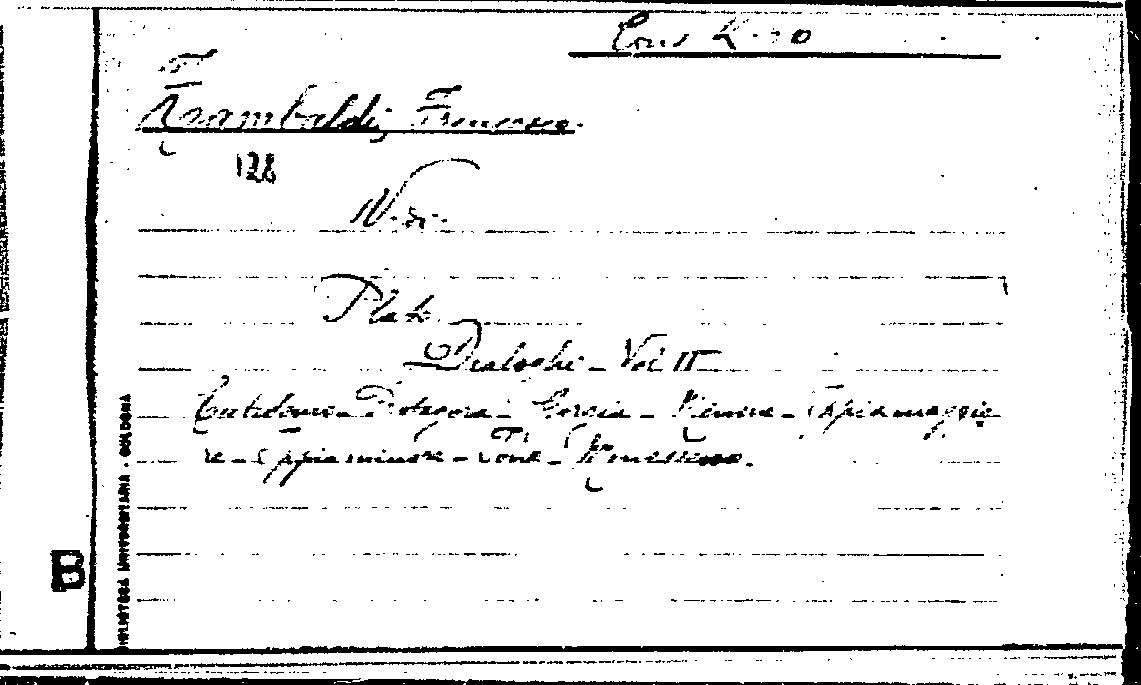 Cons K. 20
Zambaldi, Francesco.
128
V. di.
Plato
Dialoghi - Vol II
Eutidemo - Protagora - Gorgia - Menone - Ippia maggio
re - Ippia minore - Ione - Menesseno.
BIBLIOTECA UNIVERSITARIA - BOLOGNA
B